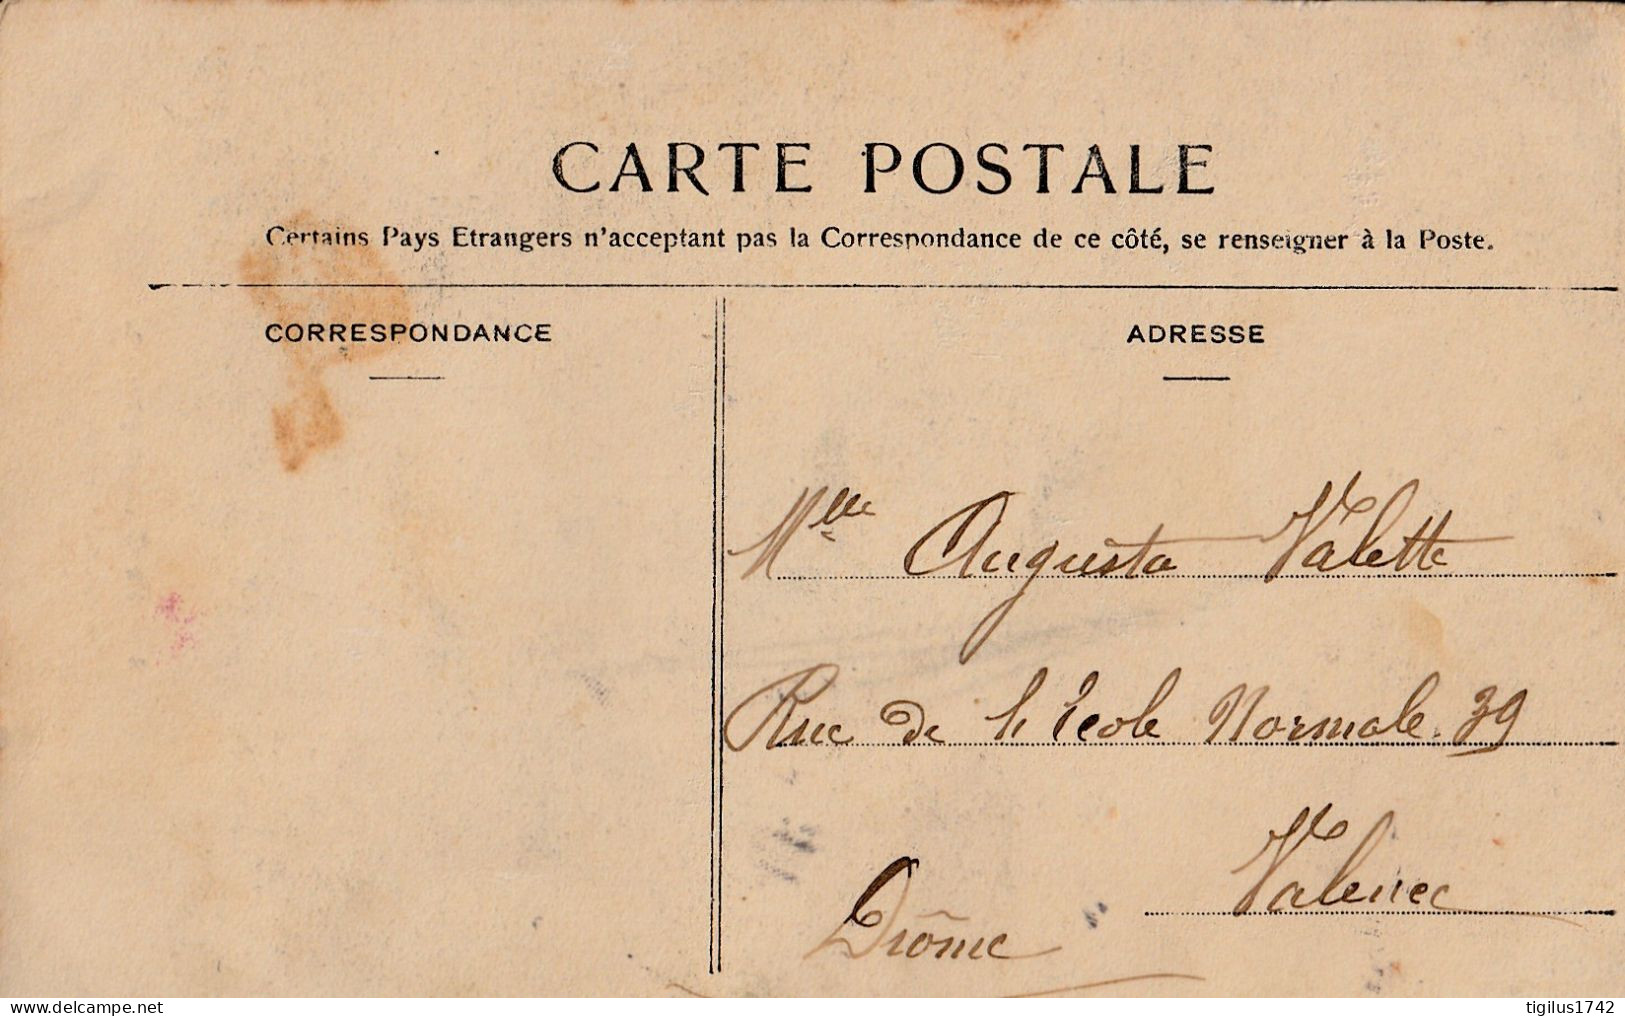 CARTE POSTALE
Certains Pays Etrangers n'acceptant pas la Correspondance de ce côté, se renseigner à la Poste.
CORRESPONDANCE
ADRESSE
Mlle Augusta Valette
Rue de l'École Normale. 39
Valence
Drôme
delcampe.net
tigilus1742